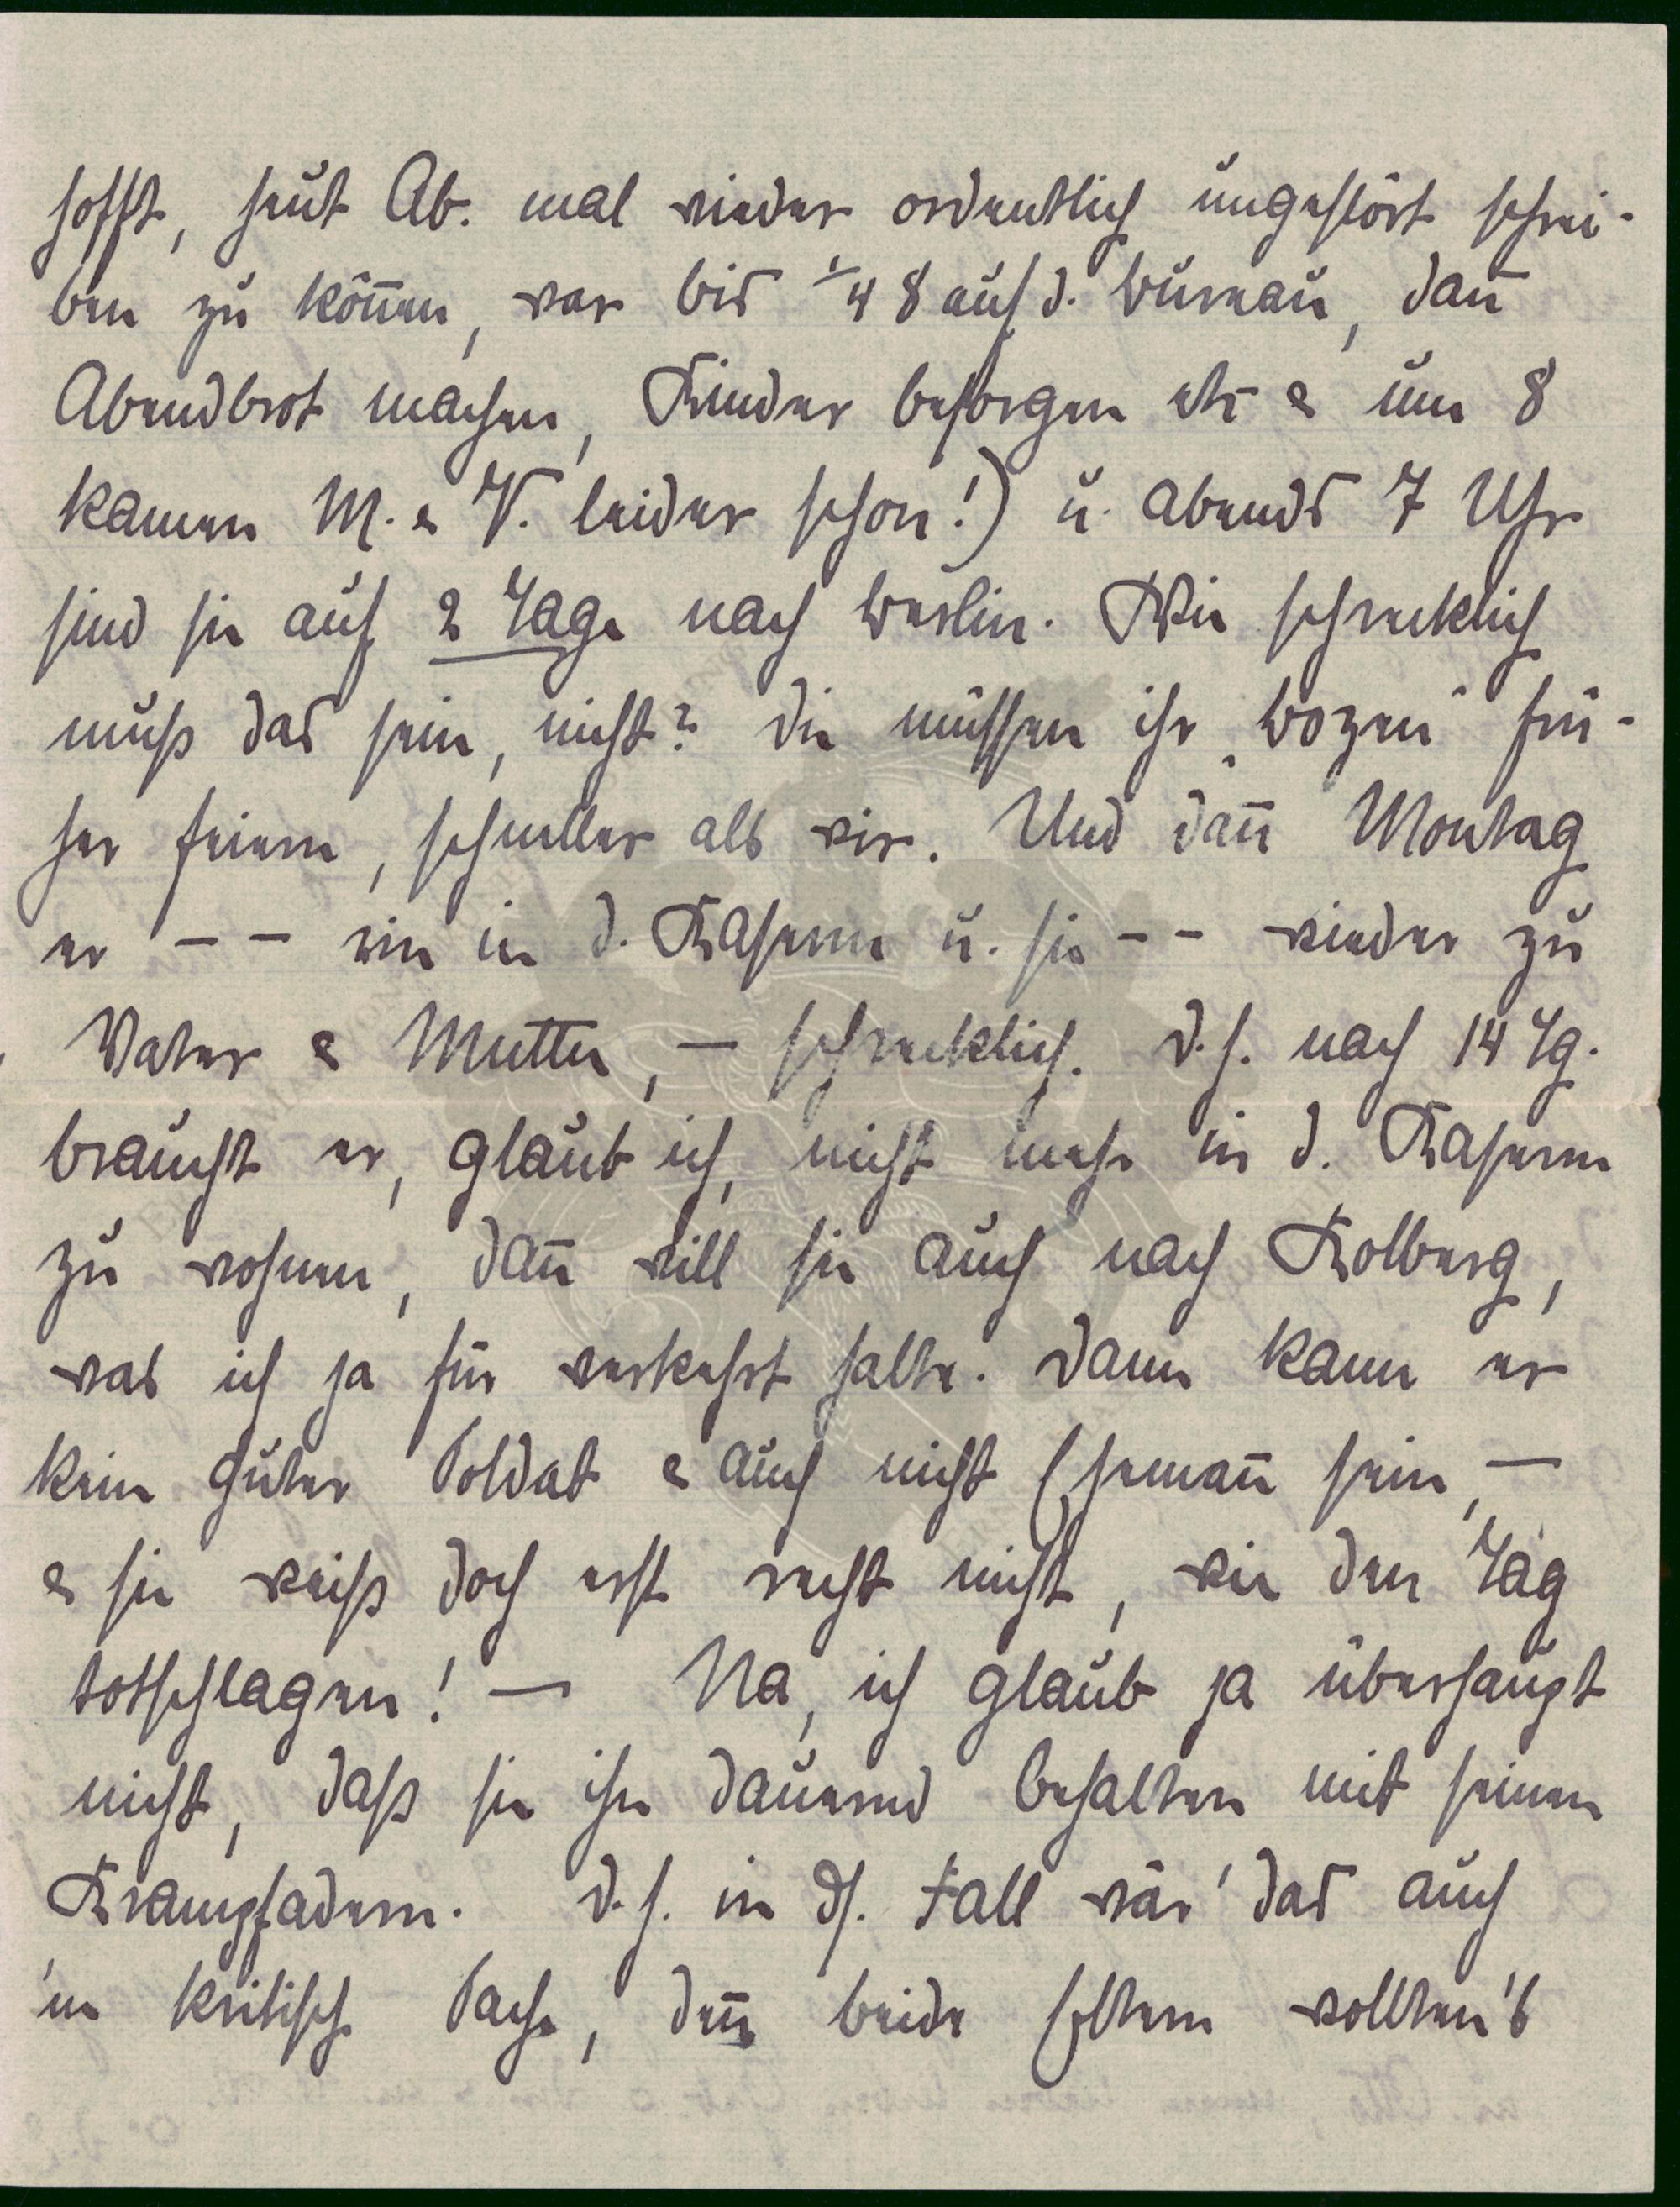 hofft, heut Ab. mal wieder ordentlich ungestört schrei-
ben zu kön̄en, war bis ¼ 8 auf d. Büreau, dan̄
Abendbrot machen, Kinder besorgen etc & um 8
kamen M. & V. leider schon!) u. abends 7 Uhr
sind sie auf 2 Tage nach Berlin. Wie schrecklich
muß das sein, nicht? Die müssen ihr „Bozen“ frü-
her feiern, schneller als wir. Und dan̄ Montag
er – – wie in d. Kaserne u. sie – – wieder zu
Vater & Mutter, – schrecklich. D.h. nach 14 Tg.
braucht er, glaub ich, nicht mehr in d. Kaserne
zu wohnen, dan̄ will sie auch nach Kolberg,
was ich ja für verkehrt halte. Dann kann er
kein guter Soldat & auch nicht Eheman̄ sein, –
& sie weiß doch erst recht nicht, wie den Tag
totschlagen! – Na, ich glaub ja überhaupt
nicht, daß sie ihn dauernd behalten mit seinen
Krampfadern. D.h. in ds. Fall wär' das auch
'ne kritisch. Sache, den̄ beide Eltern wollten's